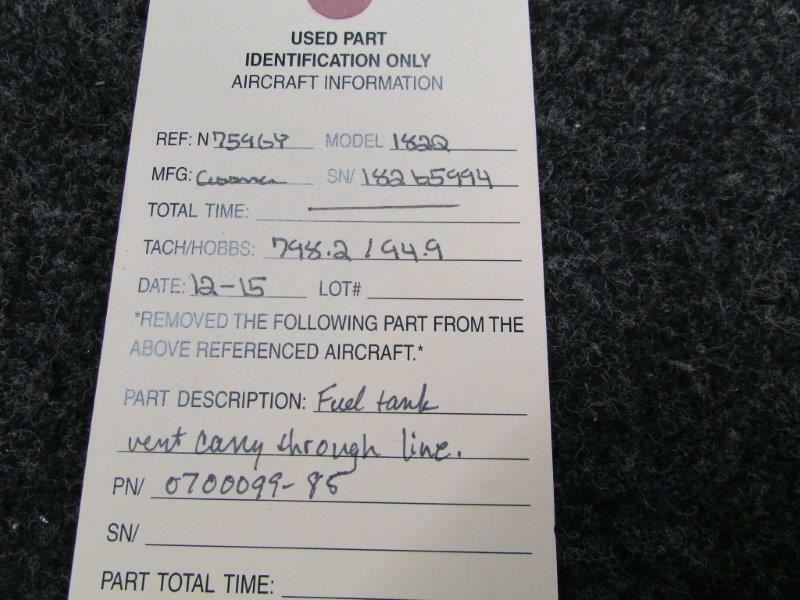 USED PART
IDENTIFICATION ONLY
AIRCRAFT INFORMATION
REF: N 7596Y MODEL 182Q
MFG: Cessna SN/ 18265994
TOTAL TIME:
TACH/HOBBS: 798.2 / 94.9
DATE: 12-15 LOT#
*REMOVED THE FOLLOWING PART FROM THE
ABOVE REFERENCED AIRCRAFT.*
PART DESCRIPTION: Fuel tank
vent carry through line.
PN/ 0700099-85
SN/
PART TOTAL TIME: